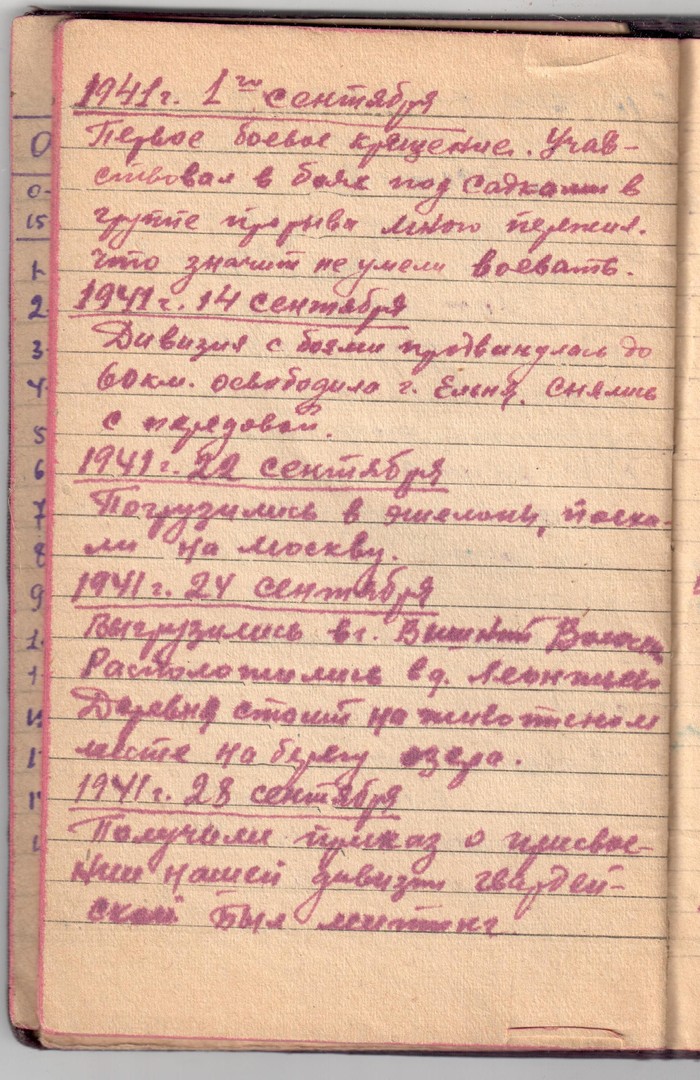 1941г. 1го сентября
Первое боевое крещение. Учав-
ствовал в боях под Садками в
группе прорыва много пережил.
Что значит не умели воевать.
1941г. 14 сентября
Дивизия с боями продвинулась до
60 км. освободила г. Ельня. Снялись
с передовой.
1941г. 22 сентября
Погрузились в эшелоны, поеха-
ли на Москву.
1941г. 24 сентября
Выгрузились в г. Вышний Волочек
Расположились в д. Леонтьево
Деревня стоит на живописном
месте на берегу озера.
1941г. 28 сентября
Получили приказ о присвое-
нии нашей дивизии гвардей-
ской был митинг
0
0-
15
1-
2
3
4
5
6
7
8
9
1.
1.
1
1